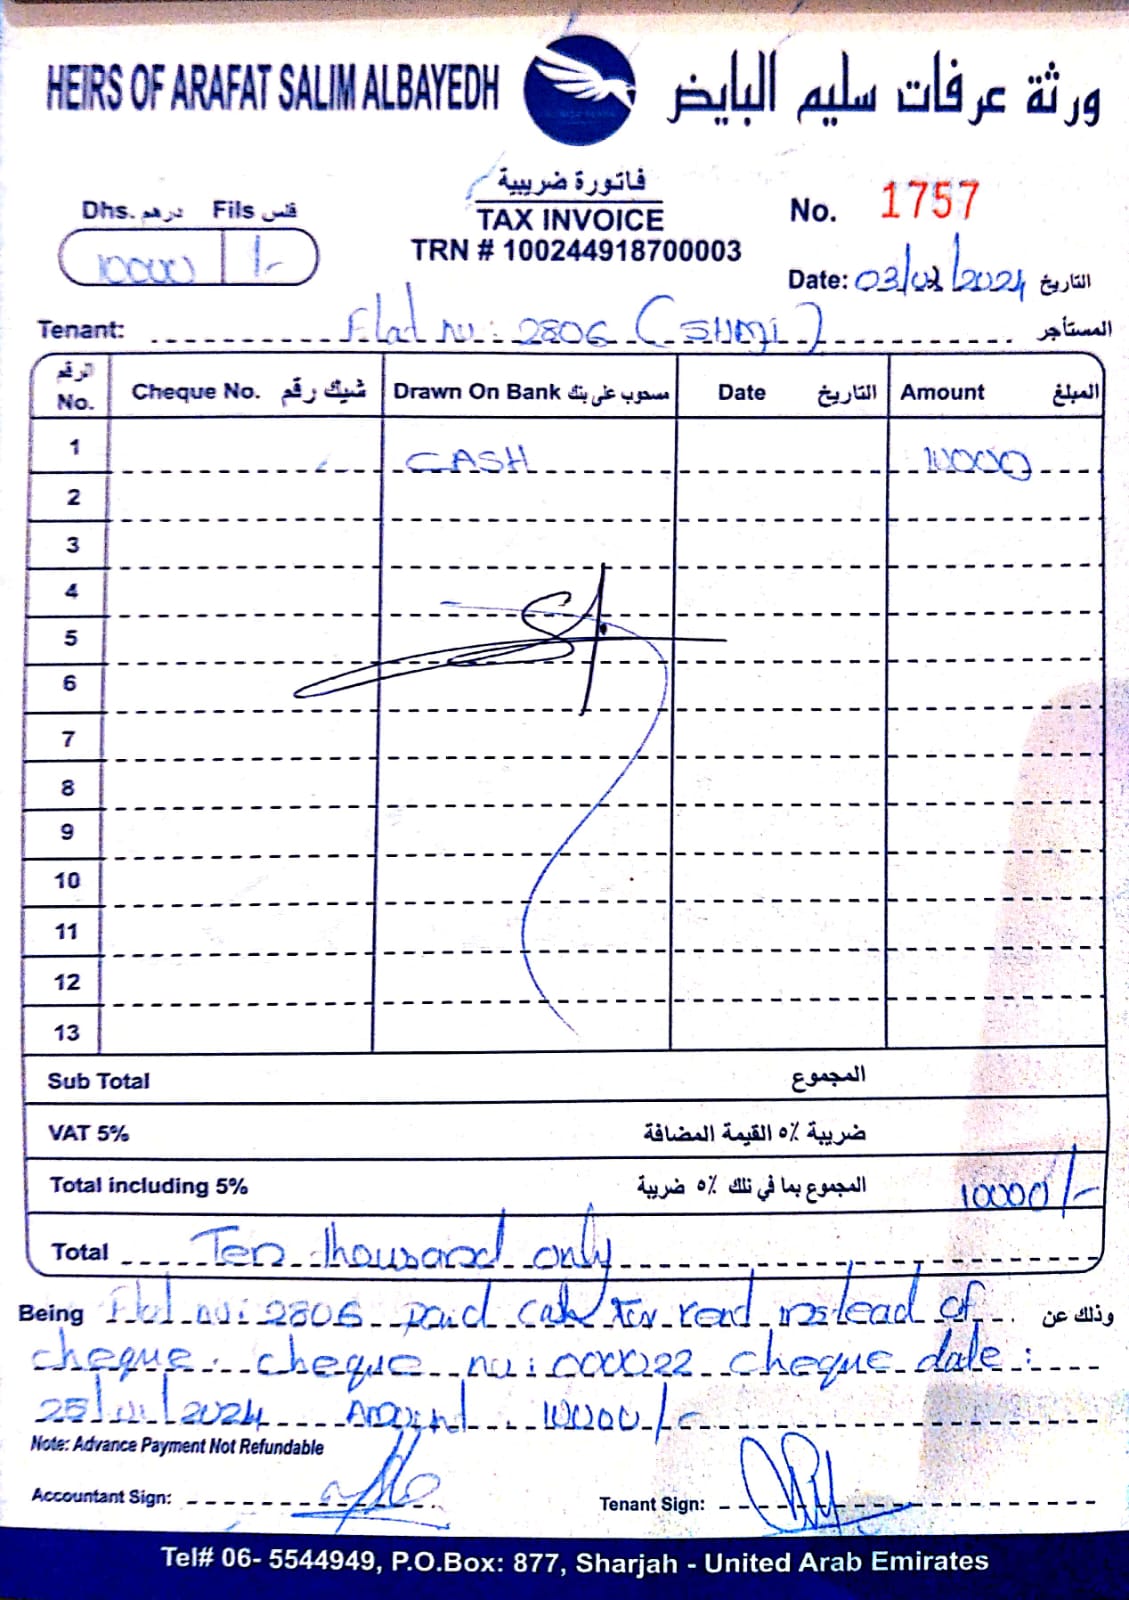 HEIRS OF ARAFAT SALIM ALBAYEDH
ورثة عرفات سليم البايض
Dhs. درهم Fils فلس
10000 /-
فاتورة ضريبية
TAX INVOICE
TRN # 100244918700003
No. 1757
Date: 03/ /2024 التاريخ
Tenant: Flat no: 2806 ( ) المستأجر
الرقم No. Cheque No. شيك رقم Drawn On Bank مسحوب على بنك Date التاريخ Amount المبلغ
1 CASH 10000
2
3
4
5
6
7
8
9
10
11
12
13
Sub Total المجموع
VAT 5% ضريبة ٥٪ القيمة المضافة
Total including 5% المجموع بما في ذلك ٥٪ ضريبة 10000/-
Total Ten thousand only
Being Flat no: 2806 paid cash for rent instead of وذلك عن
cheque. cheque no: 000022 cheque date:
25/01/2024 Amount: 10000/-
Note: Advance Payment Not Refundable
Accountant Sign: Tenant Sign:
Tel# 06- 5544949, P.O.Box: 877, Sharjah - United Arab Emirates